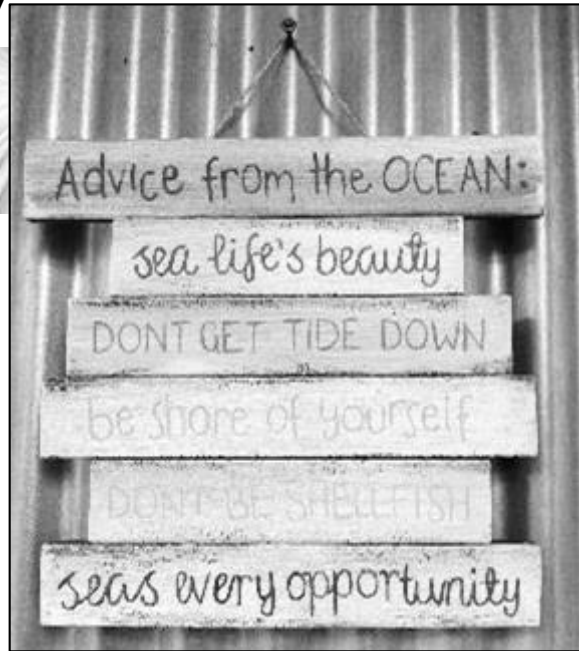 Advice from the OCEAN:
sea life's beauty
DONT GET TIDE DOWN
be shore of yourself
DONT BE SHELLFISH
seas every opportunity